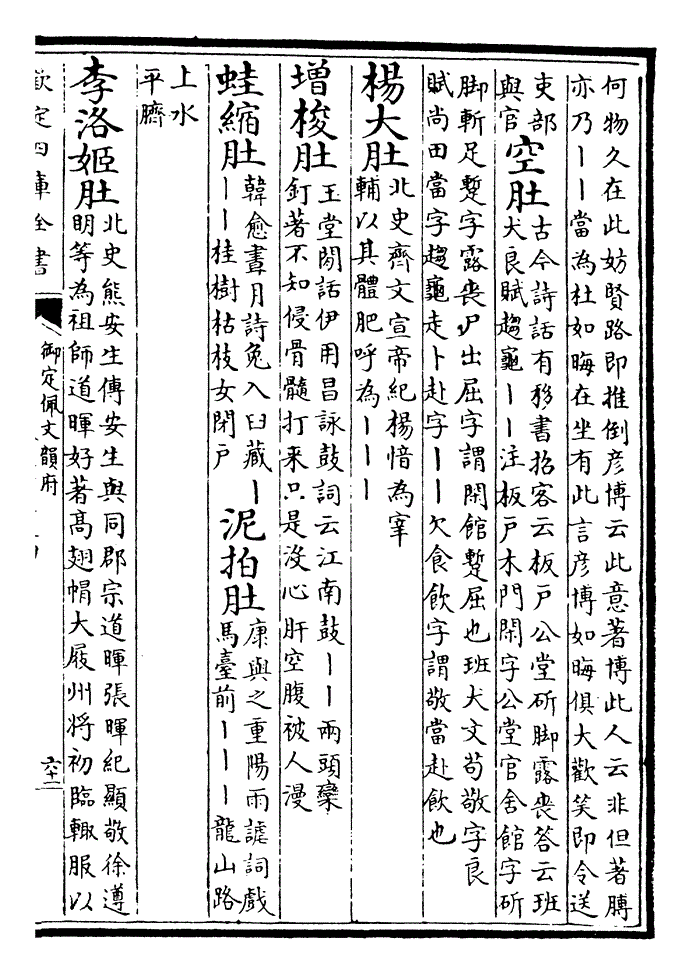 何物久在此妨賢路即推倒彦博云此意著博此人云非但著膊
亦乃丨丨當為杜如晦在坐有此言彦博如晦俱大歡笑即令送
吏部
與官
空肚
古今詩話有移書招客云板戸公堂斫脚露丧答云班
犬良賦趨龜丨丨注板戸木門閑字公堂官舍館字斫
脚斬足蹔字露丧尸出屈字謂閑館蹔屈也班犬文苟敬字良
賦尚田當字趨龜走卜赴字丨丨欠食飲字謂敬當赴飲也
楊大肚
北史齊文宣帝紀楊愔為宰
輔以其體肥呼為丨丨丨
增梭肚
玉堂閑話伊用昌詠鼓詞云江南鼓丨丨兩頭欒
釘著不知侵骨髓打来只是沒心肝空腹被人漫
蛙縮肚
韓愈晝月詩兔入臼藏丨
丨丨桂樹枯枝女閉戸
泥拍肚
康與之重陽雨謔詞戲
馬臺前丨丨丨龍山路
上水
平臍
李洛姬肚
北史熊安生傳安生與同郡宗道暉張暉紀顯敬徐遵
明等為祖師道暉好著髙翅帽大屐州将初臨輙服以
欽定四庫全書
御定佩文韻府
六十二